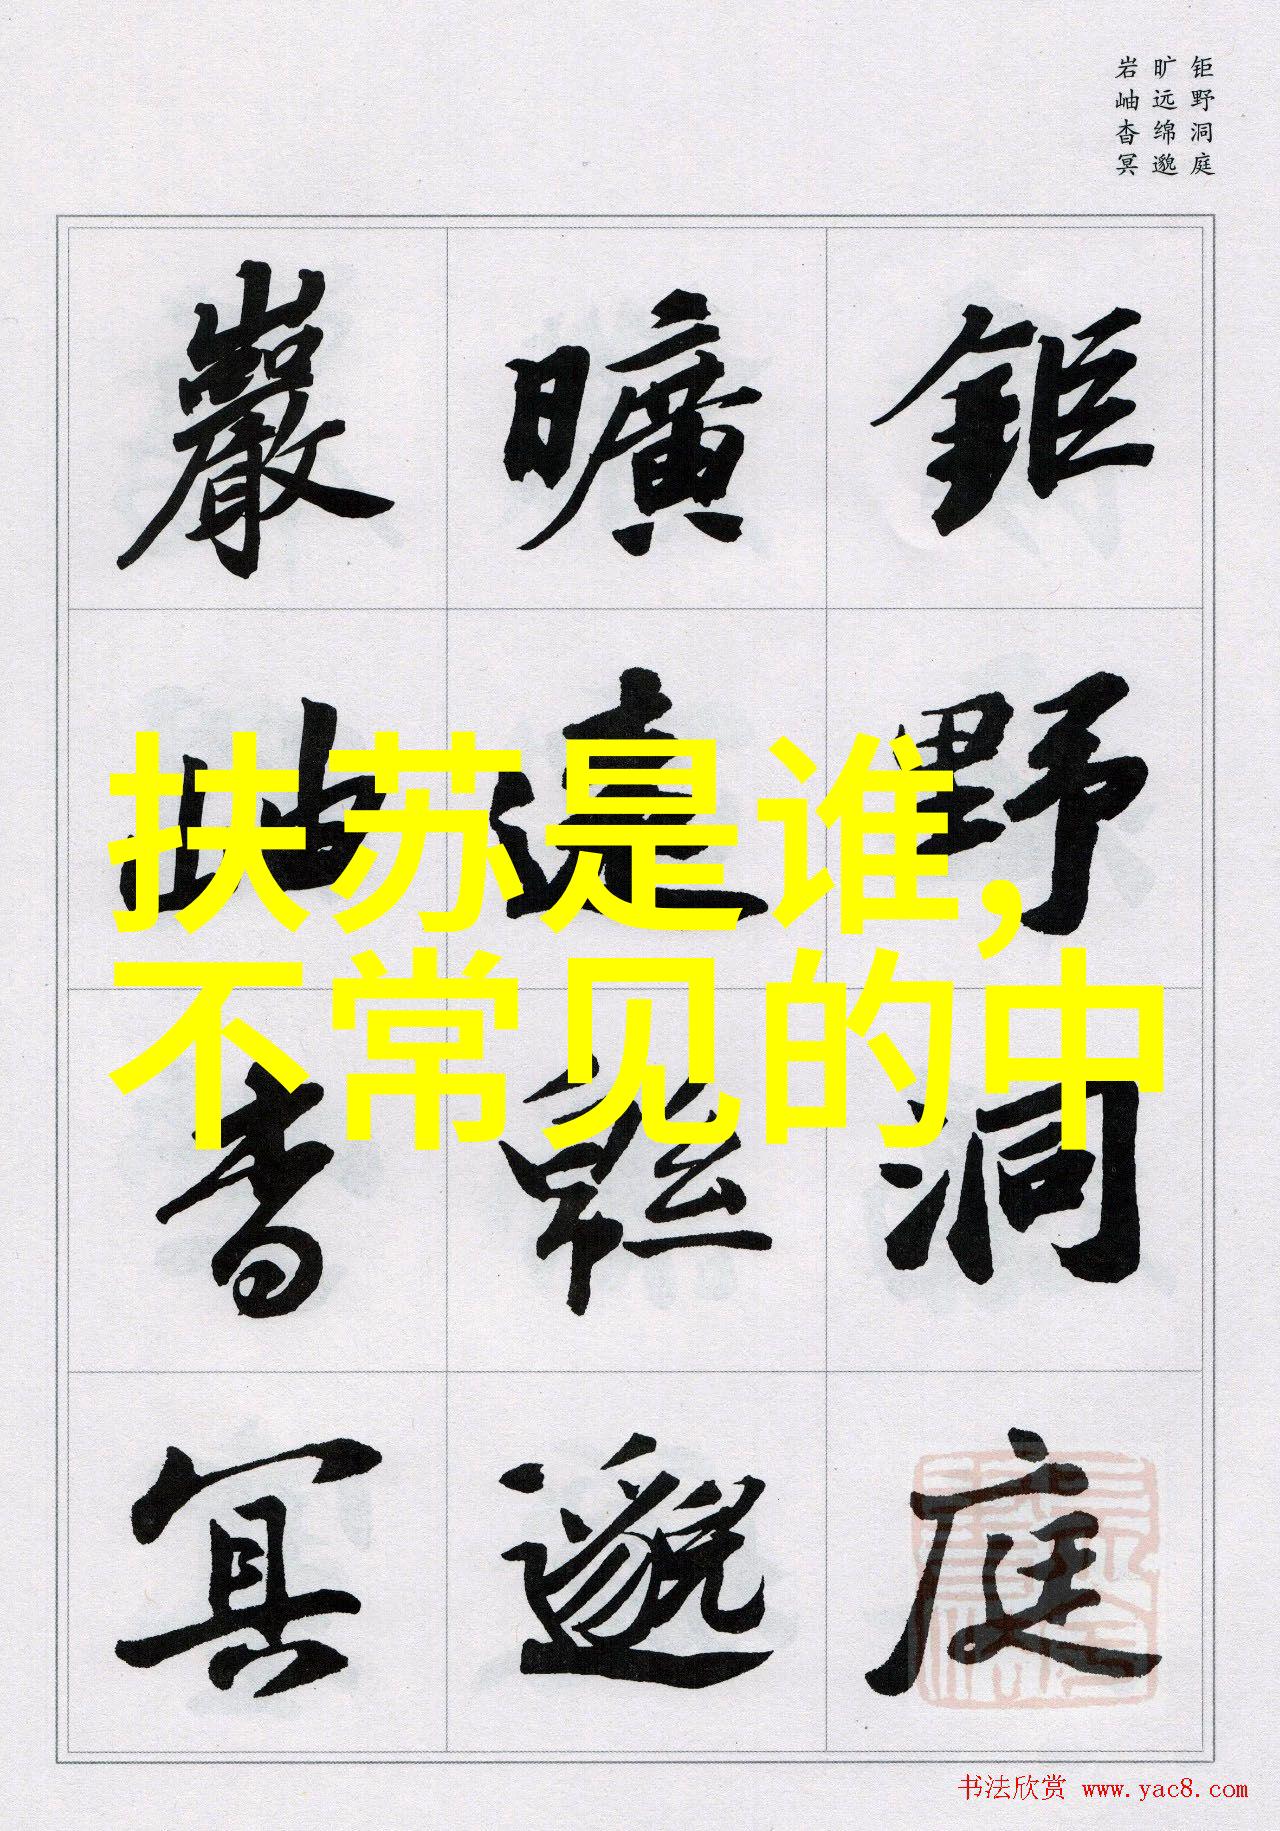 钜野洞庭
旷远绵邈
岩岫杳冥
鉅野洞庭
曠遠緜邈
巖岫杳冥
扶苏是谁，
不常见的中
书法欣赏 www.yac8.com